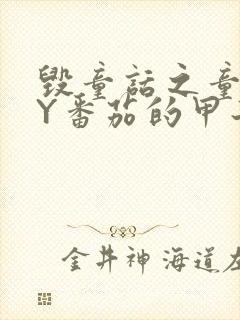 毁童话之童
Y番茄的甲
金井神海道左